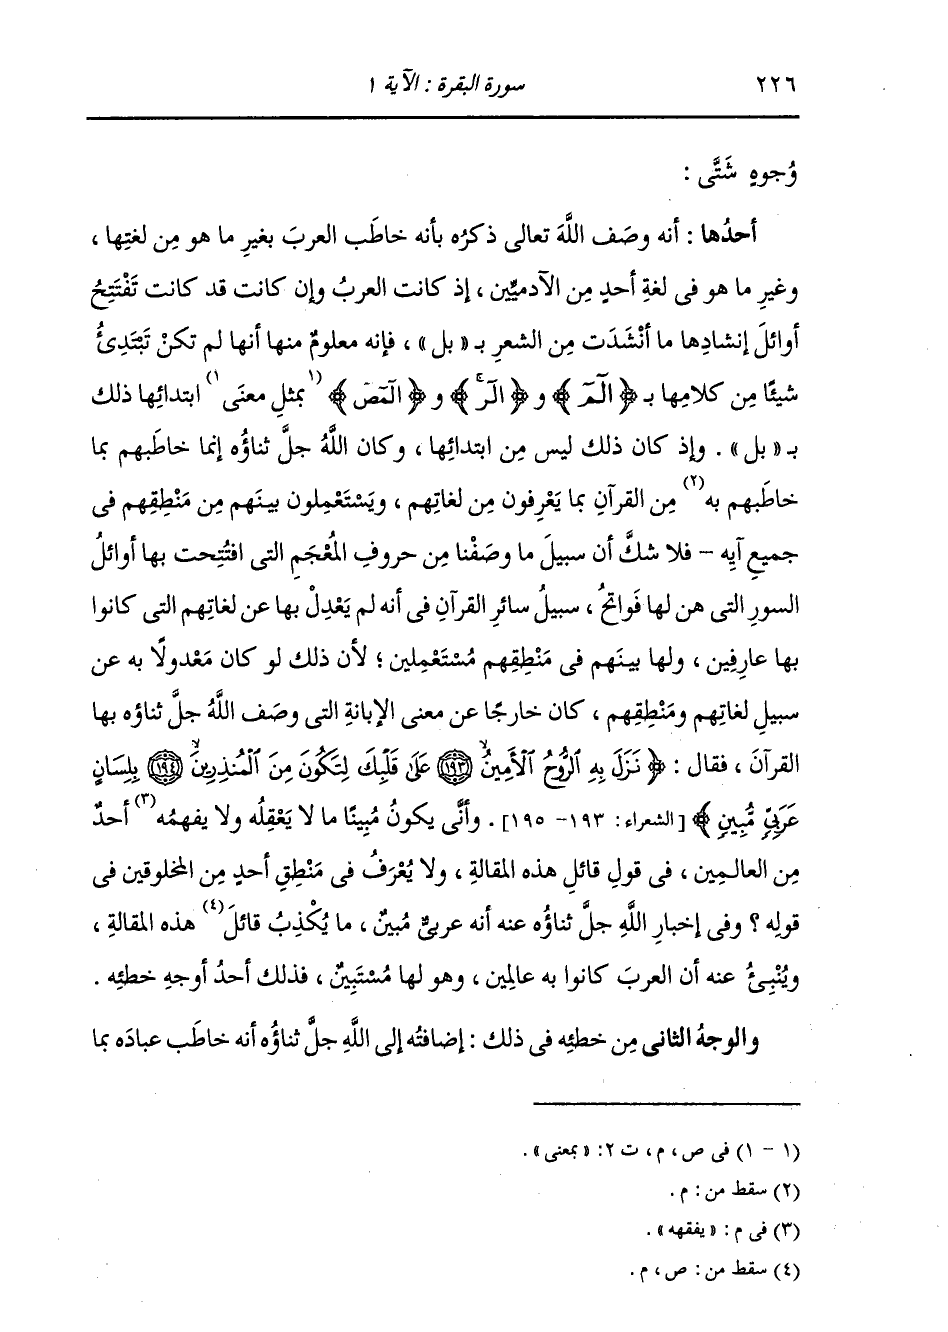 ٢٢٦ سورة البقرة : الآية ١
وُجوهٍ شَتَّى :
أحدُها : أنه وصَف اللَّهَ تعالى ذكرُه بأنه خاطَب العربَ بغيرِ ما هو مِن لغتِها ،
وغيرِ ما هو فى لغةِ أحدٍ مِن الآدميِّين ، إذ كانت العربُ وإن كانت قد كانت تَفْتَتِحُ
أوائلَ إنشادِها ما أنْشَدَت مِن الشعرِ بـ « بل » ، فإنه معلومٌ منها أنها لم تكنْ تَبْتَدِئُ
شيئًا مِن كلامِها بـ ﴿ الٓمٓ ﴾ و ﴿ الٓر ﴾ و ﴿ الٓمٓصٓ ﴾ (١ بمثلِ معنَى ١) ابتدائِها ذلك
بـ « بل » . وإذ كان ذلك ليس مِن ابتدائِها ، وكان اللَّهُ جلَّ ثناؤُه إنما خاطَبهم بما
خاطَبهم به(٢) مِن القرآنِ بما يَعْرِفون مِن لغاتِهم ، ويَسْتَعْمِلون بينَهم مِن مَنْطِقِهم فى
جميعِ آيِه – فلا شكَّ أن سبيلَ ما وصَفْنا مِن حروفِ المُعْجَمِ التى افتُتِحت بها أوائلُ
السورِ التى هن لها فَواتحُ ، سبيلُ سائرِ القرآنِ فى أنه لم يَعْدِلْ بها عن لغاتِهم التى كانوا
بها عارِفِين ، ولها بينَهم فى مَنْطِقِهم مُسْتَعْمِلين ؛ لأن ذلك لو كان مَعْدولًا به عن
سبيلِ لغاتِهم ومَنْطِقِهم ، كان خارجًا عن معنى الإبانةِ التى وصَف اللَّهُ جلَّ ثناؤه بها
القرآنَ ، فقال : ﴿ نَزَلَ بِهِ ٱلرُّوحُ ٱلْأَمِينُ ﴿١٩٣﴾ عَلَىٰ قَلْبِكَ لِتَكُونَ مِنَ ٱلْمُنذِرِينَ ﴿١٩٤﴾ بِلِسَانٍ
عَرَبِيٍّ مُّبِينٍ ﴾ [الشعراء: ١٩٣- ١٩٥] . وأنَّى يكونُ مُبِينًا ما لا يَعْقِلُه ولا يفهمُه(٣) أحدٌ
مِن العالَمِين ، فى قولِ قائلِ هذه المقالةِ ، ولا يُعْرَفُ فى مَنْطِقِ أحدٍ مِن المخلوقين فى
قولِه ؟ وفى إخبارِ اللَّهِ جلَّ ثناؤُه عنه أنه عربىٌّ مُبينٌ ، ما يُكْذِبُ قائلَ(٤) هذه المقالةِ ،
ويُنْبِئُ عنه أن العربَ كانوا به عالِمين ، وهو لها مُسْتَبِينٌ ، فذلك أحدُ أوجهِ خطئِه .
والوجهُ الثانى مِن خطئِه فى ذلك : إضافتُه إلى اللَّهِ جلَّ ثناؤُه أنه خاطَب عبادَه بما
(١ - ١) فى ص ، م ، ت ٢: « بمعنى » .
(٢) سقط من : م .
(٣) فى م : « يفقهه » .
(٤) سقط من : ص ، م .